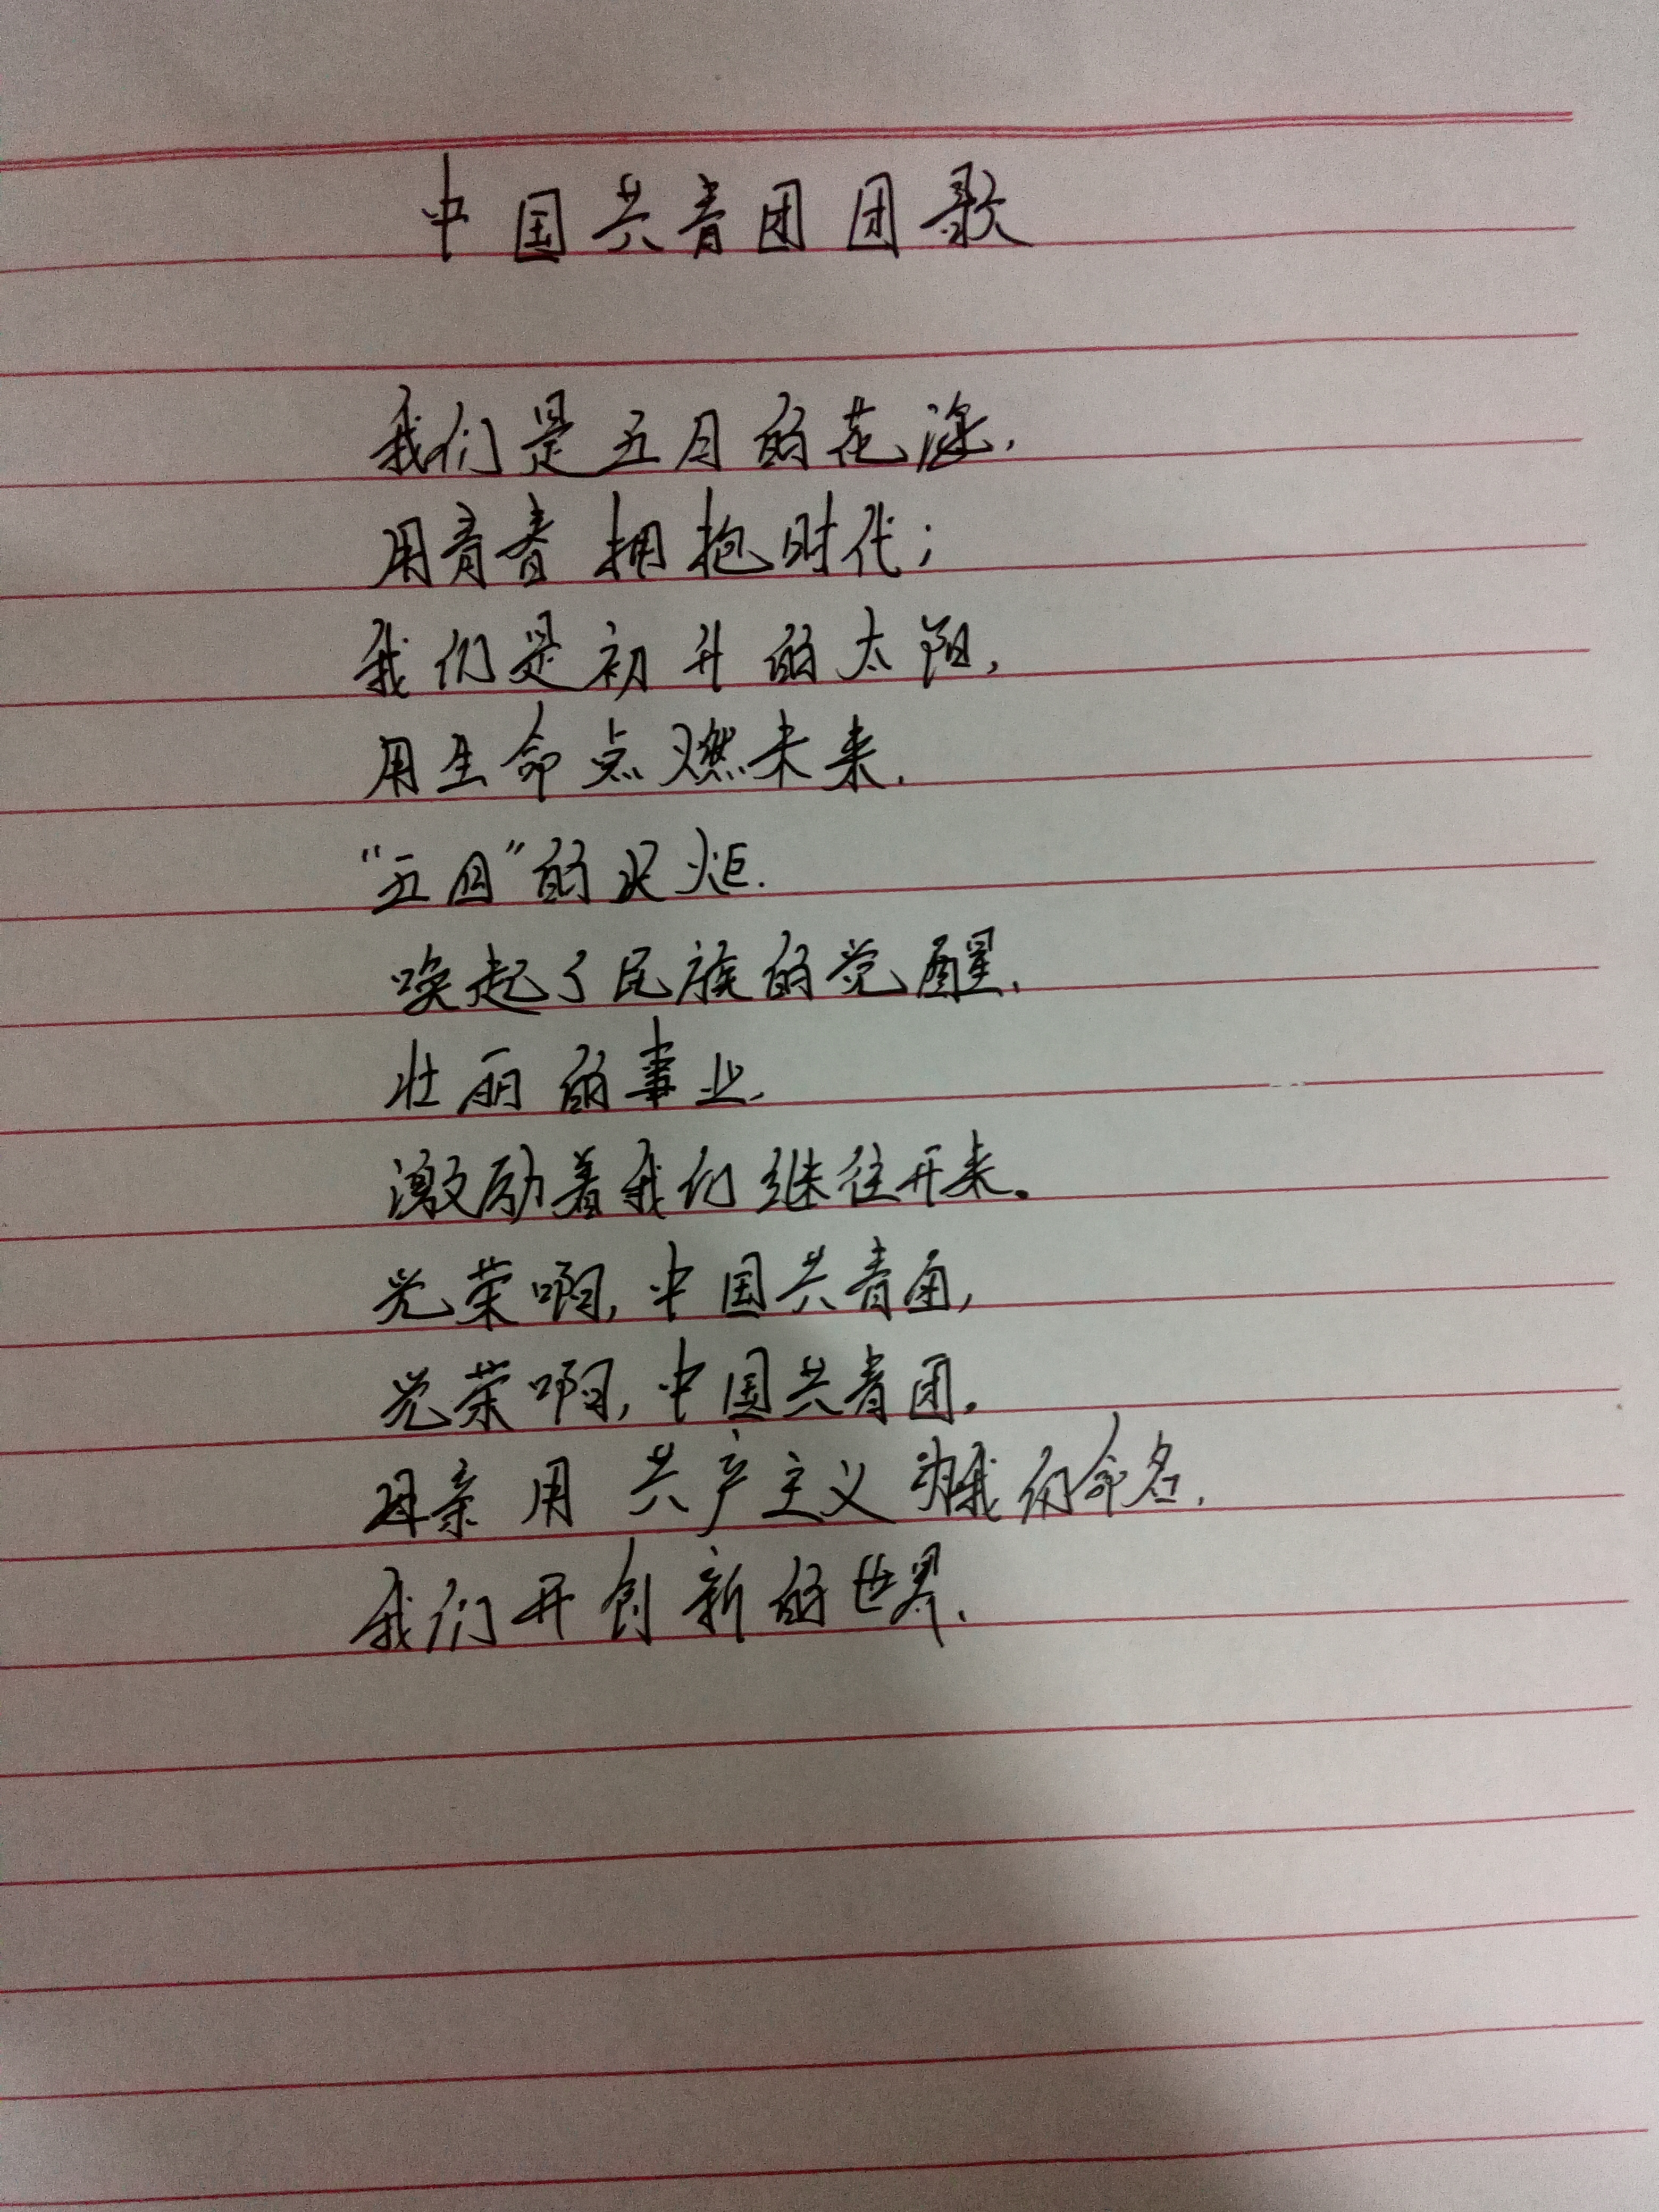 中国共青团团歌
我们是五月的花海,
用青春拥抱时代;
我们是初升的太阳,
用生命点燃未来.
“五四”的火炬.
唤起了民族的觉醒.
壮丽的事业.
激励着我们继往开来.
光荣啊,中国共青团,
光荣啊,中国共青团.
母亲用共产主义为我们命名.
我们开创新的世界.